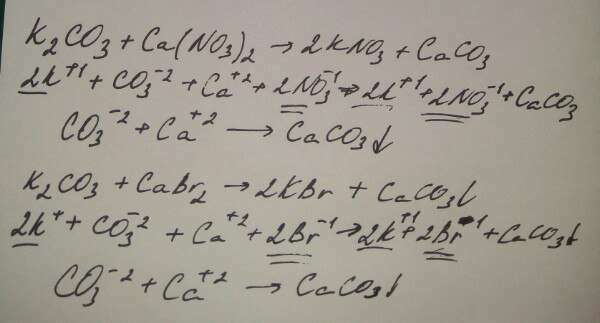 K₂CO₃ + Ca(NO₃)₂ → 2KNO₃ + CaCO₃
2K⁺¹ + CO₃⁻² + Ca⁺² + 2NO₃⁻¹ → 2K⁺¹ + 2NO₃⁻¹ + CaCO₃
CO₃⁻² + Ca⁺² → CaCO₃↓
K₂CO₃ + CaBr₂ → 2KBr + CaCO₃↓
2K⁺ + CO₃⁻² + Ca⁺² + 2Br⁻¹ → 2K⁺¹ + 2Br⁻¹ + CaCO₃↓
CO₃⁻² + Ca⁺² → CaCO₃↓